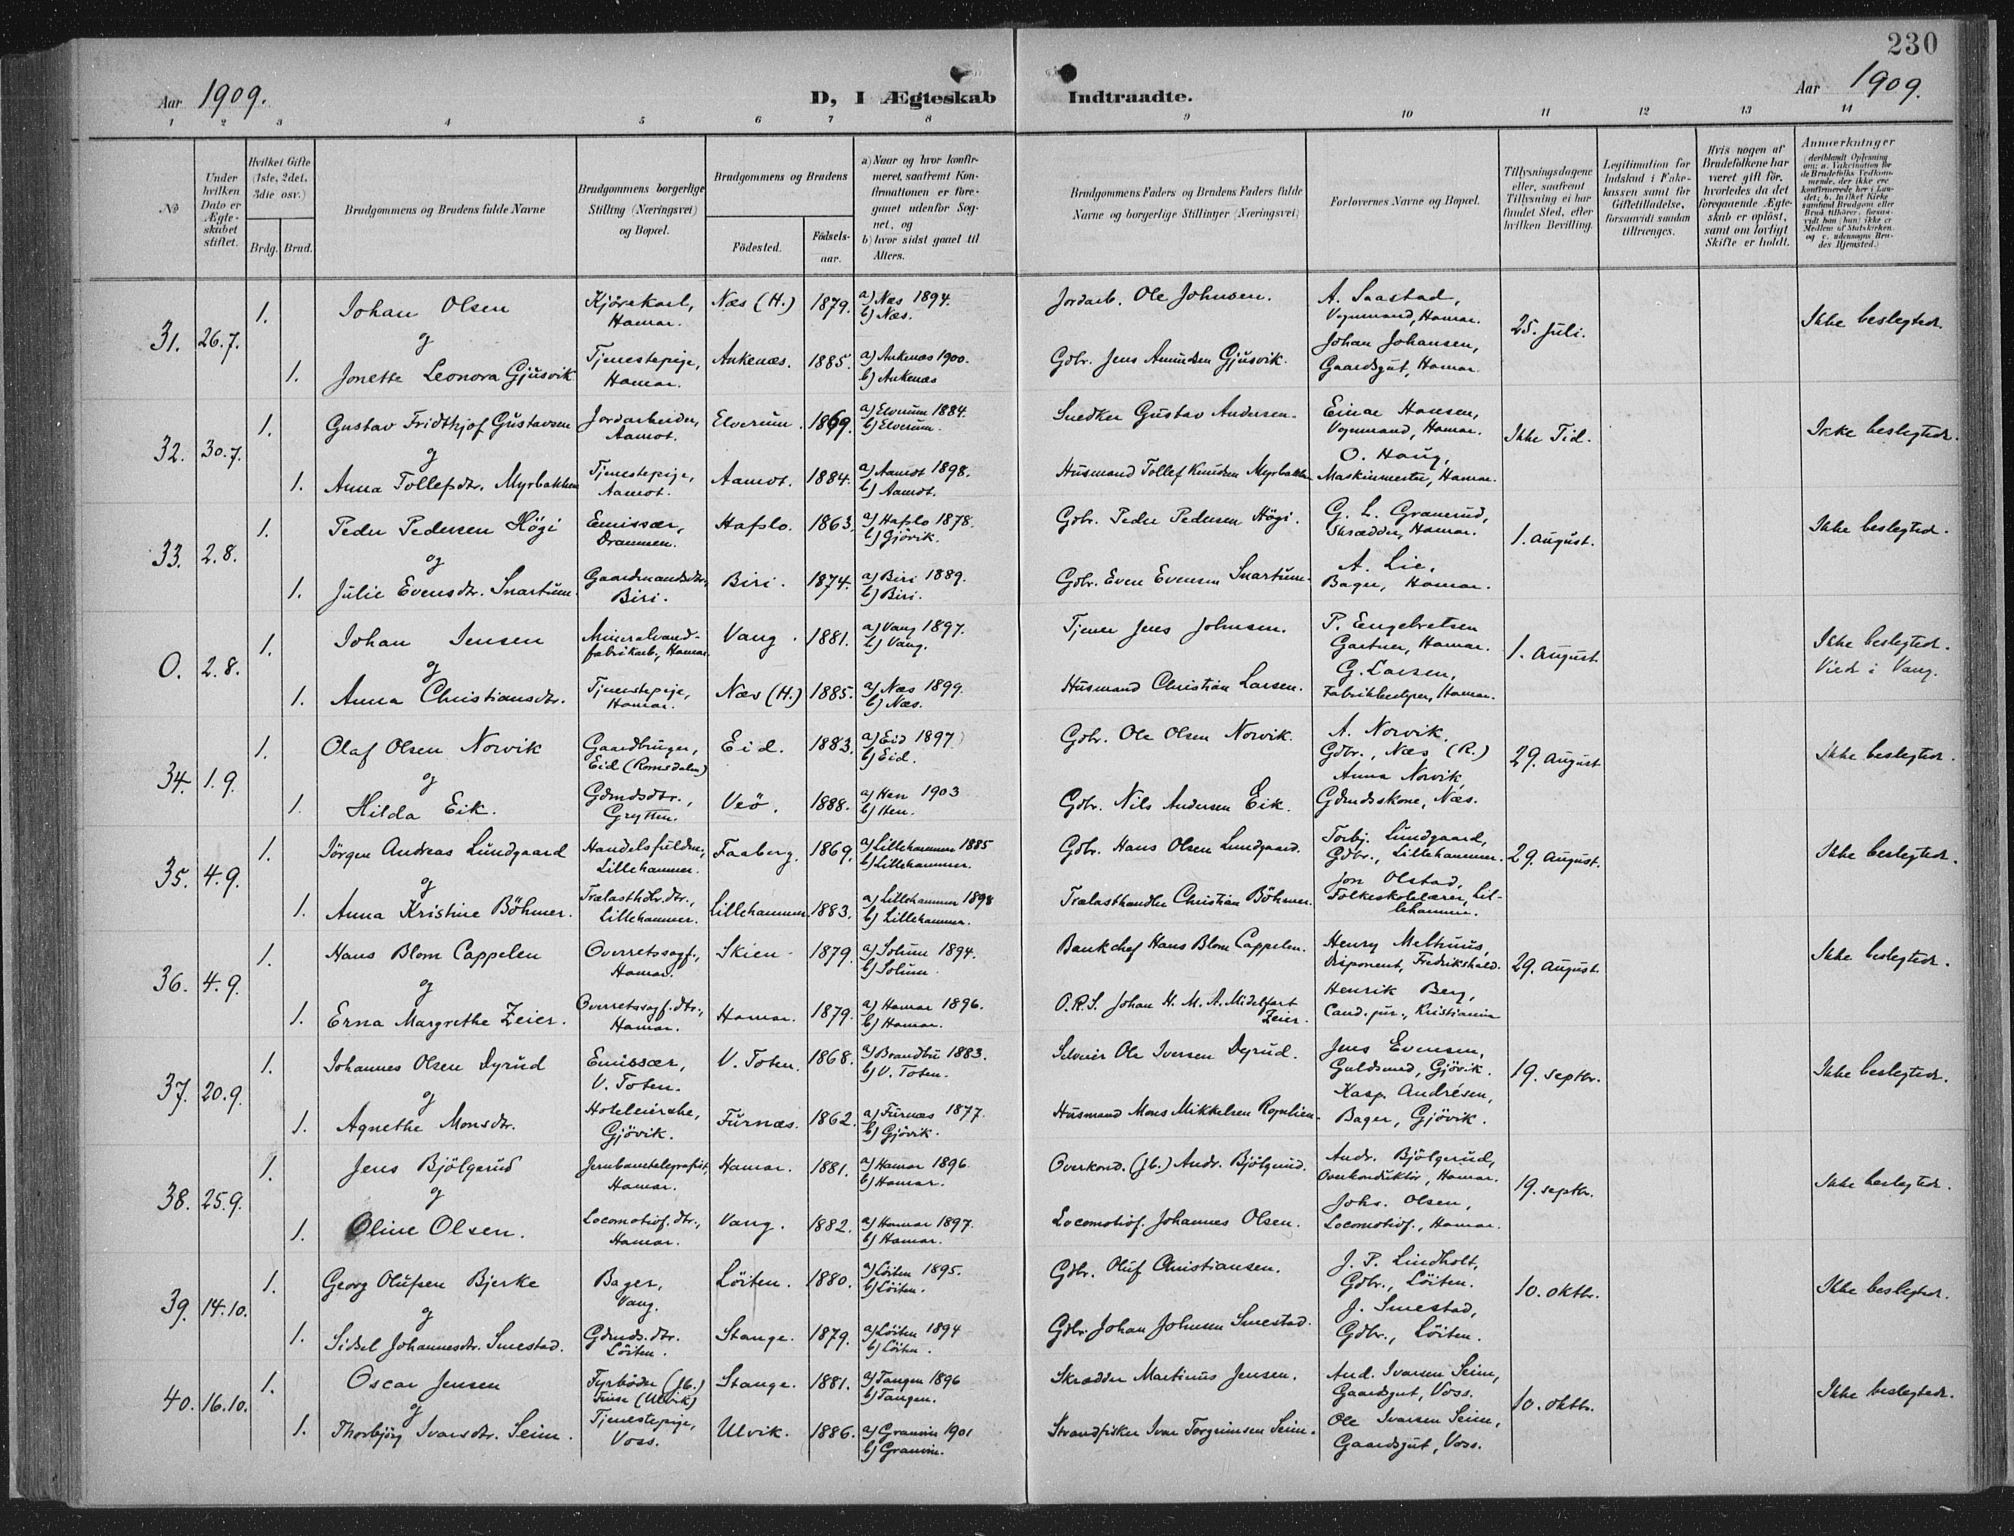 230
Aar 1909.
D, I Ægteskab Indtraadte.
Aar 1909.
1 2 3 4 5 6 7 8 9 10 11 12 13 14
No
Under hvilken Dato er Ægteskabet stiftet.
Hvilket Gifte (1ste, 2det, 3die osv.)
Brdg. Brud.
Brudgommens og Brudens fulde Navne
Brudgommens borgerlige Stilling (Næringsvei) og Bopæl.
Brudgommens og Brudens
Födested.
Födselsaar.
a) Naar og hvor konfirmeret, saafremt Konfirmationen er foregaaet udenfor Sognet, og
b) hvor sidst gaaet til Alters.
Brudgommens Faders og Brudens Faders fulde Navne og borgerlige Stillinger (Næringsvei)
Forlovernes Navne og Bopæl.
Tillysningsdagene eller, saafremt Tillysning ei har fundet Sted, efter hvilken Bevilling.
Legitimation for Indskud i Enkekassen samt for Giftetilladelse, forsaavidt saadan tiltrænges.
Hvis nogen af Brudefolkene har været gift för, hvorledes da det foregaaende Ægteskab er oplöst, samt om lovligt Skifte er holdt.
Anmærkninger
31. 26.7. 1. Johan Olsen Kjörekarl, Hamar. Næs (H.) 1879. a) Næs 1894. b) Næs. Jordarb. Ole Johnsen. A. Saastad, Vognmand, Hamar. 25. Juli. Ikke beslegtede.
og
1. Jonette Leonora Gjusvik Tjenestepige, Hamar. Ankenæs. 1885. a) Ankenæs 1900. b) Ankenæs Gdbr. Jens Amundsen Gjusvik. Johan Johansen, Gaardsgut, Hamar.
32. 30.7. 1. Gustav Fridthjof Gustavsen Jordarbeider, Aamot. Elverum. 1869. a) Elverum 1884. b) Elverum. Snedker Gustav Andersen. Einar Hansen, Vognmand, Hamar. Ikke Tid. Ikke beslegtede.
og
1. Anna Tollefsdtr. Myrbakken Tjenestepige, Aamot. Aamot. 1884. a) Aamot 1898. b) Aamot. Husmand Tollef Knudsen Myrbakken O. Haug, Maskinmester, Hamar.
33. 2.8. 1. Peder Pedersen Högi Emissær, Drammen. Hafslo. 1863. a) Hafslo 1878. b) Gjövik. Gdbr. Peder Pedersen Högi. G. L. Granerud, Skrædder, Hamar. 1. August. Ikke beslegtede.
og
1. Julie Evensdtr. Snartum. Gaardmandsdtr., Biri. Biri. 1874. a) Biri 1889. b) Biri. Gdbr. Even Evensen Snartum. A. Lie, Bager, Hamar.
0. 2.8. 1. Johan Jensen Mineralvandfabrikarb., Hamar. Vang. 1881. a) Vang 1897. b) Vang. Tjener Jens Johnsen. P. Engebretsen Gartner, Hamar. 1. August. Ikke beslegtede. Viede i Vang.
og
1. Anna Christiansdtr. Tjenestepige, Hamar. Næs (H.) 1885. a) Næs 1899. b) Næs. Husmand Christian Larsen. G. Larsen, Fabrikbestyrer, Hamar.
34. 1.9. 1. Olaf Olsen Norvik Gaardbruger, Eid (Romsdalen) Eid. 1883. a) Eid 1897. b) Eid. Gdbr. Ole Olsen Norvik. A. Norvik. Gdbr., Næs (R.) 29. August Ikke beslegtede.
og
1. Hilda Eik. Gdmdsdtr., Grytten. Veö. 1888. a) Hen 1903 b) Hen. Gdbr. Nils Andersen Eik. Anna Norvik, Gdmdskone, Næs.
35. 4.9. 1. Jörgen Andreas Lundgaard Handelsfuldm., Lillehammer. Faaberg. 1869. a) Lillehammer 1885 b) Lillehammer. Gdbr. Hans Olsen Lundgaard. Torbj. Lundgaard, Gdbr., Lillehammer. 29. August. Ikke beslegtede.
og
1. Anna Kristine Böhmer. Trælasthdlr.dtr., Lillehammer. Lillehammer. 1883. a) Lillehammer 1898 b) Lillehammer. Trælasthandler Christian Böhmer. Jon Olstad, Folkeskolelærer, Lillehammer.
36. 4.9. 1. Hans Blom Cappelen Overretssagf., Hamar. Skien. 1879. a) Solum 1894. b) Solum. Bankchef Hans Blom Cappelen. Henry Disponent, Fredrikshald. 29. August. Ikke beslegtede.
og
1. Erna Margrethe Zeier. Overretssagf.dtr., Hamar. Hamar. 1879. a) Hamar 1896. b) Hamar. O.R.S. Johan H. M. A. Midelfart Zeier. Henrik Berg, Cand. jur., Kristiania
37. 20.9. 1. Johannes Olsen Dyrud Emissær, V. Toten. V. Toten. 1868. a) Brandbu 1883. b) V. Toten. Selveier Ole Iversen Dyrud. Jens Evensen, Guldsmed, Gjövik. 19. septbr. Ikke beslegtede.
og
1. Agnethe Monsdtr. Hoteleierske, Gjövik. Furnæs. 1862. a) Furnæs 1877. b) Gjövik. Husmand Mons Mikkelsen Kasp. Andrésen, Bager, Gjövik.
38. 25.9. 1. Jens Bjölgerud Jernbanetelegrafist, Hamar. Hamar. 1881. a) Hamar 1896. b) Hamar. Overkond. (Jb.) Andr. Bjölgerud. Andr. Bjölgerud, Overkonduktör, Hamar. 19. septbr. Ikke beslegtede.
og
1. Oline Olsen. Locomotivf.dtr., Hamar. Vang. 1882. a) Hamar 1897. b) Hamar. Locomotivf. Johannes Olsen. Johs. Olsen, Locomotivf., Hamar.
39. 14.10. 1. Georg Olufsen Bjerke Bager, Vang. Löiten. 1880. a) Löiten 1895. b) Löiten. Gdbr. Oluf Christiansen. J. P. Lindholt, Gdbr., Löiten. 10. oktbr. Ikke beslegtede.
og
1. Sidsel Johannesdtr. Smestad. Gdmds.dtr. Löiten. Stange. 1879. a) Löiten 1894 b) Löiten. Gdbr. Johan Johnsen Smestad. J. Smestad, Gdbr., Löiten.
40. 16.10. 1. Oscar Jensen Fyrböder (Jb.) Finse (Ulvik) Stange. 1881. a) Tangen 1896 b) Tangen. Skrædder Martinus Jensen. And. Ivarsen Seim, Gaardsgut, Voss. 10. oktbr. Ikke beslegtede.
og
1. Thorbjörg Ivarsdtr. Seim. Tjenestepige, Voss. Ulvik. 1886. a) Granvin 1901 b) Granvin. Strandsisker Ivar Torgeirsen Seim. Ole Ivarsen Seim, Gaardsgut, Voss.